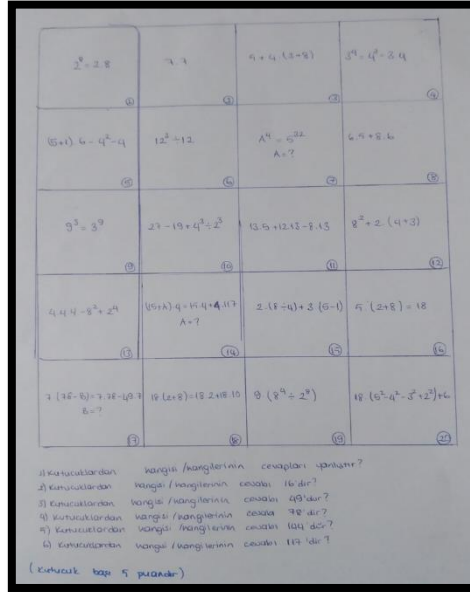 2⁸ = 2.8
①
7.7
②
9+4.(2+8)
③
3⁴ = 4³ - 3.4
④
(5+1).6 - 4² - 4
⑤
12² ÷ 12
⑥
A⁴ = 5³²
A = ?
⑦
6.5 + 8.6
⑧
9³ = 3⁹
⑨
27 - 19 + 4³ ÷ 2³
⑩
13.5 + 12.13 - 8.13
⑪
8² + 2.(4+3)
⑫
4.4.4 - 8² + 2⁴
⑬
(15+A).4 = 15.4 + 4.117
A = ?
⑭
2.(8÷4) + 3.(5-1)
⑮
5.(2+8) = 18
⑯
7.(78-B) = 7.78 - 49.7
B = ?
⑰
18.(2+8) = 18.2 + 18.10
⑱
9.(8⁴ ÷ 2⁸)
⑲
18.(5² - 4² - 3² + 2²) + 6
⑳
1) Kutucuklardan hangisi / hangilerinin cevapları yanlıştır?
2) Kutucuklardan hangisi / hangilerinin cevabı 16'dır?
3) Kutucuklardan hangisi / hangilerinin cevabı 49'dur?
4) Kutucuklardan hangisi / hangilerinin cevabı 78'dir?
5) Kutucuklardan hangisi / hangilerinin cevabı 144'dür?
6) Kutucuklardan hangisi / hangilerinin cevabı 117'dir?
(Kutucuk başı 5 puandır)